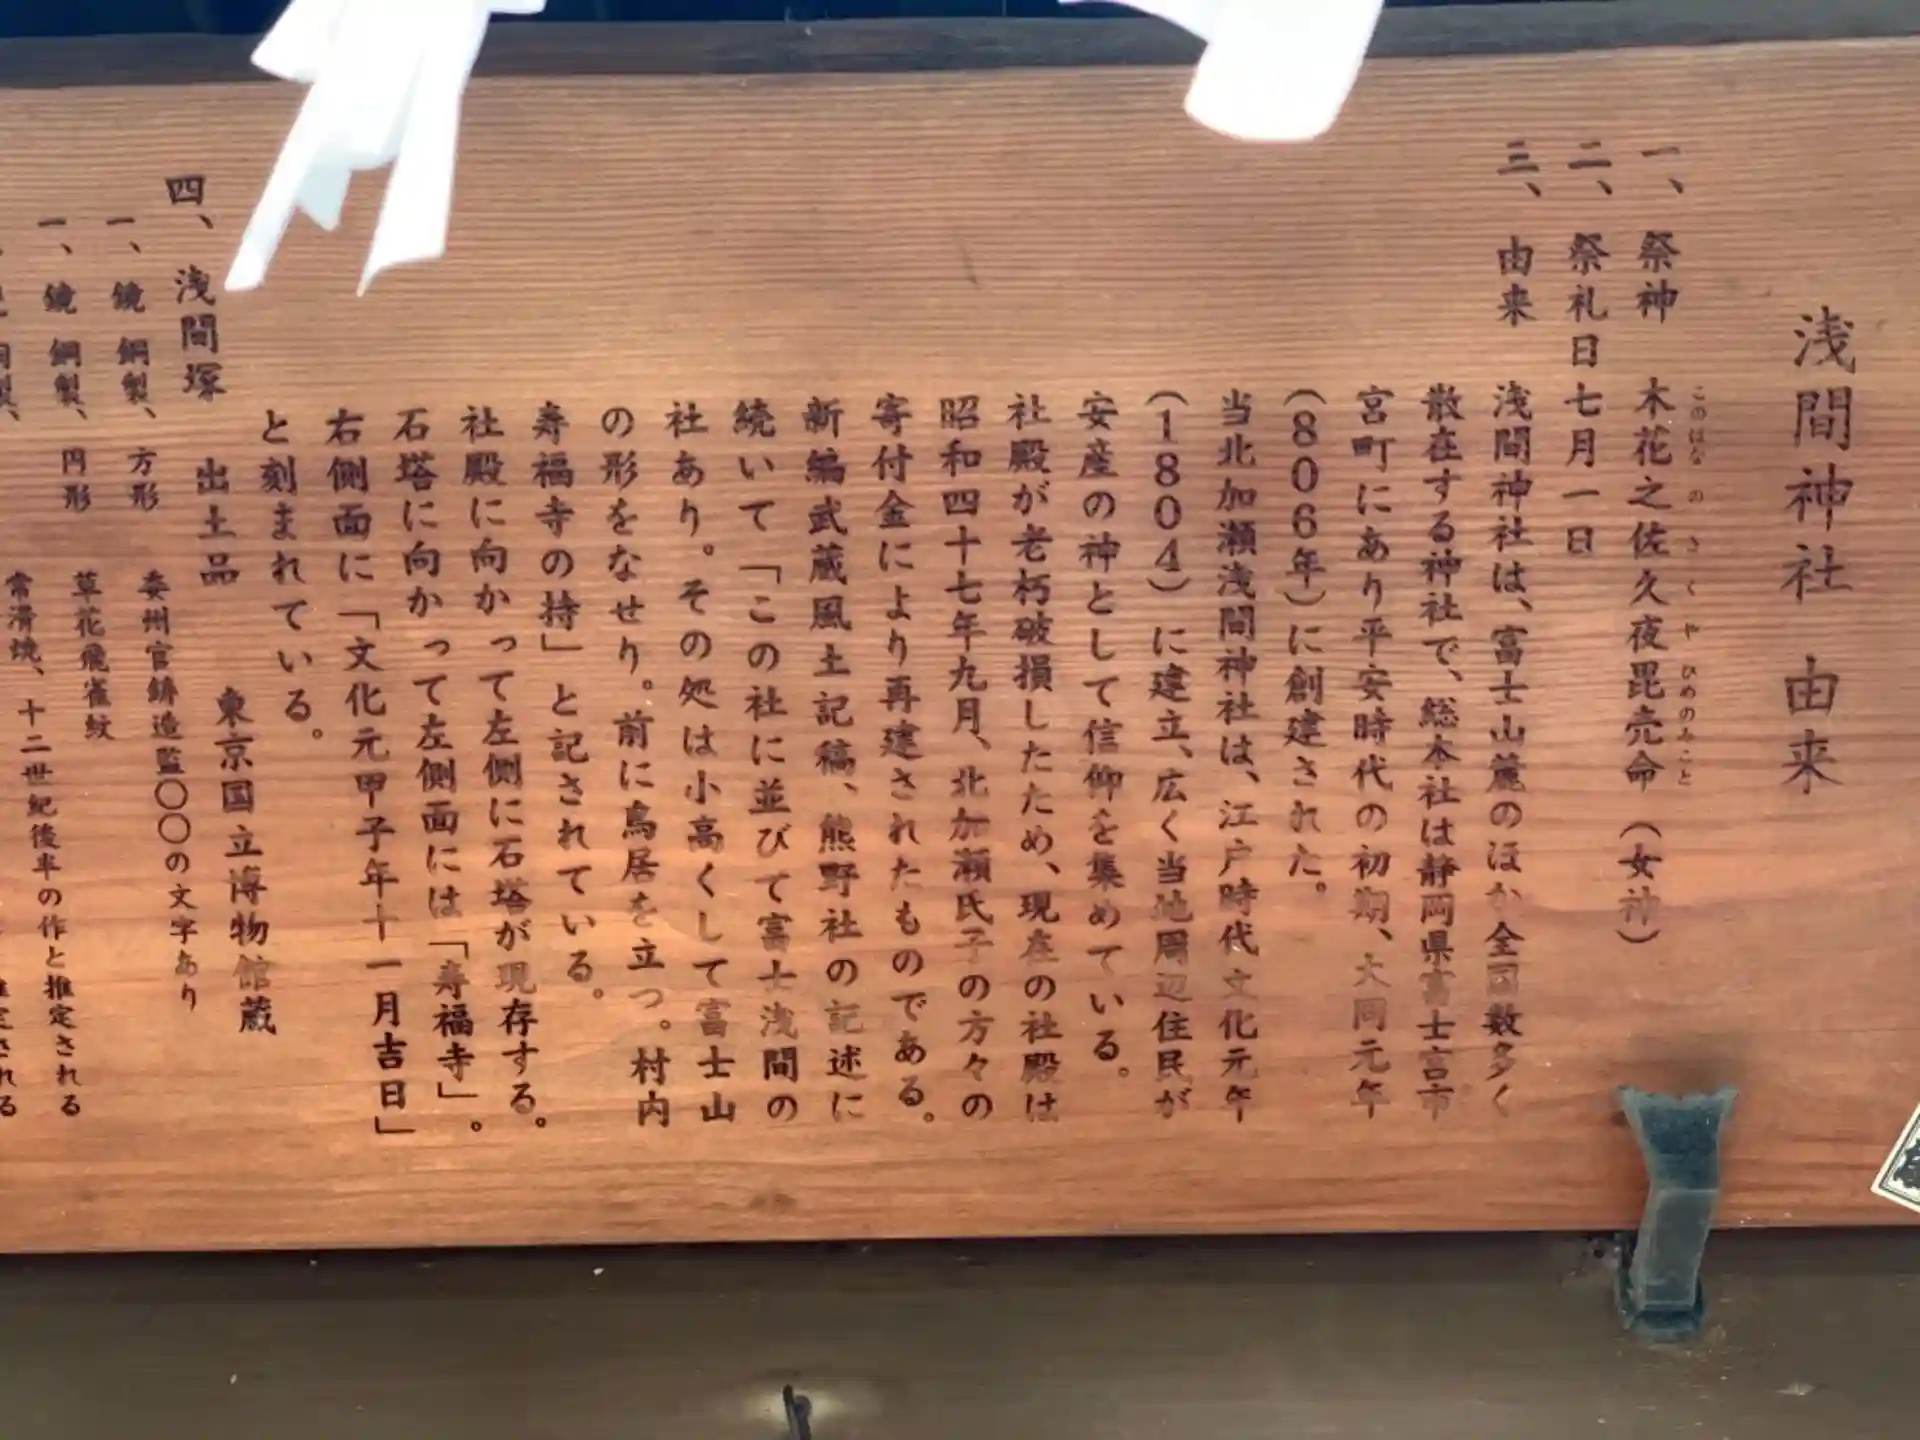 浅間神社 由来
一、祭神 木花之佐久夜毘売命（女神）
このはな の さくや ひめのみこと
二、祭礼日 七月一日
三、由来 浅間神社は、富士山麓のほか全国数多く
散在する神社で、総本社は静岡県富士宮市
宮町にあり平安時代の初期、大同元年
（806年）に創建された。
当北加瀬浅間神社は、江戸時代文化元年
（1804）に建立、広く当地周辺住民が
安産の神として信仰を集めている。
社殿が老朽破損したため、現在の社殿は
昭和四十七年九月、北加瀬氏子の方々の
寄付金により再建されたものである。
新編武蔵風土記稿、熊野社の記述に
続いて「この社に並びて富士浅間の
社あり。その処は小高くして富士山
の形をなせり。前に鳥居を立つ。村内
寿福寺の持」と記されている。
社殿に向かって左側に石塔が現存する。
石塔に向かって左側面には「寿福寺」。
右側面に「文化元甲子年十一月吉日」
と刻まれている。
四、浅間塚 出土品 東京国立博物館蔵
一、鏡 銅製、方形 秊州官鋳造監〇〇の文字あり
一、鏡 銅製、円形 草花飛雀紋
常滑焼、十二世紀後半の作と推定される